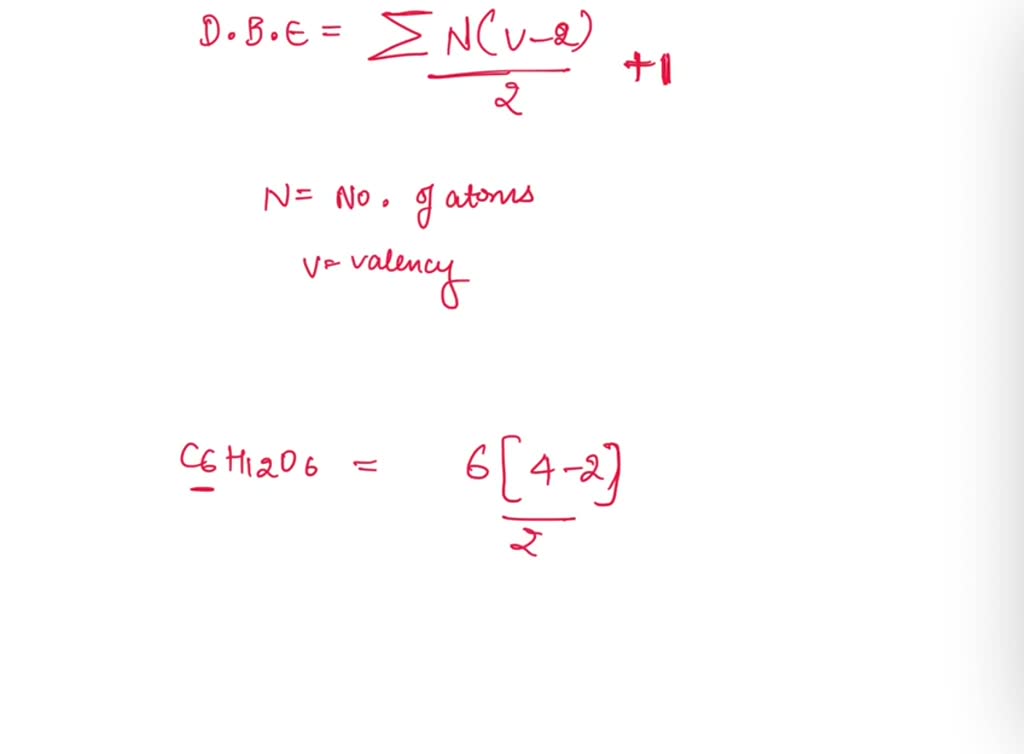 D.B.E = ∑ N(V-2) / 2 + 1
N = No. of atoms
V = valency
C6H12O6 = 6[4-2] / 2